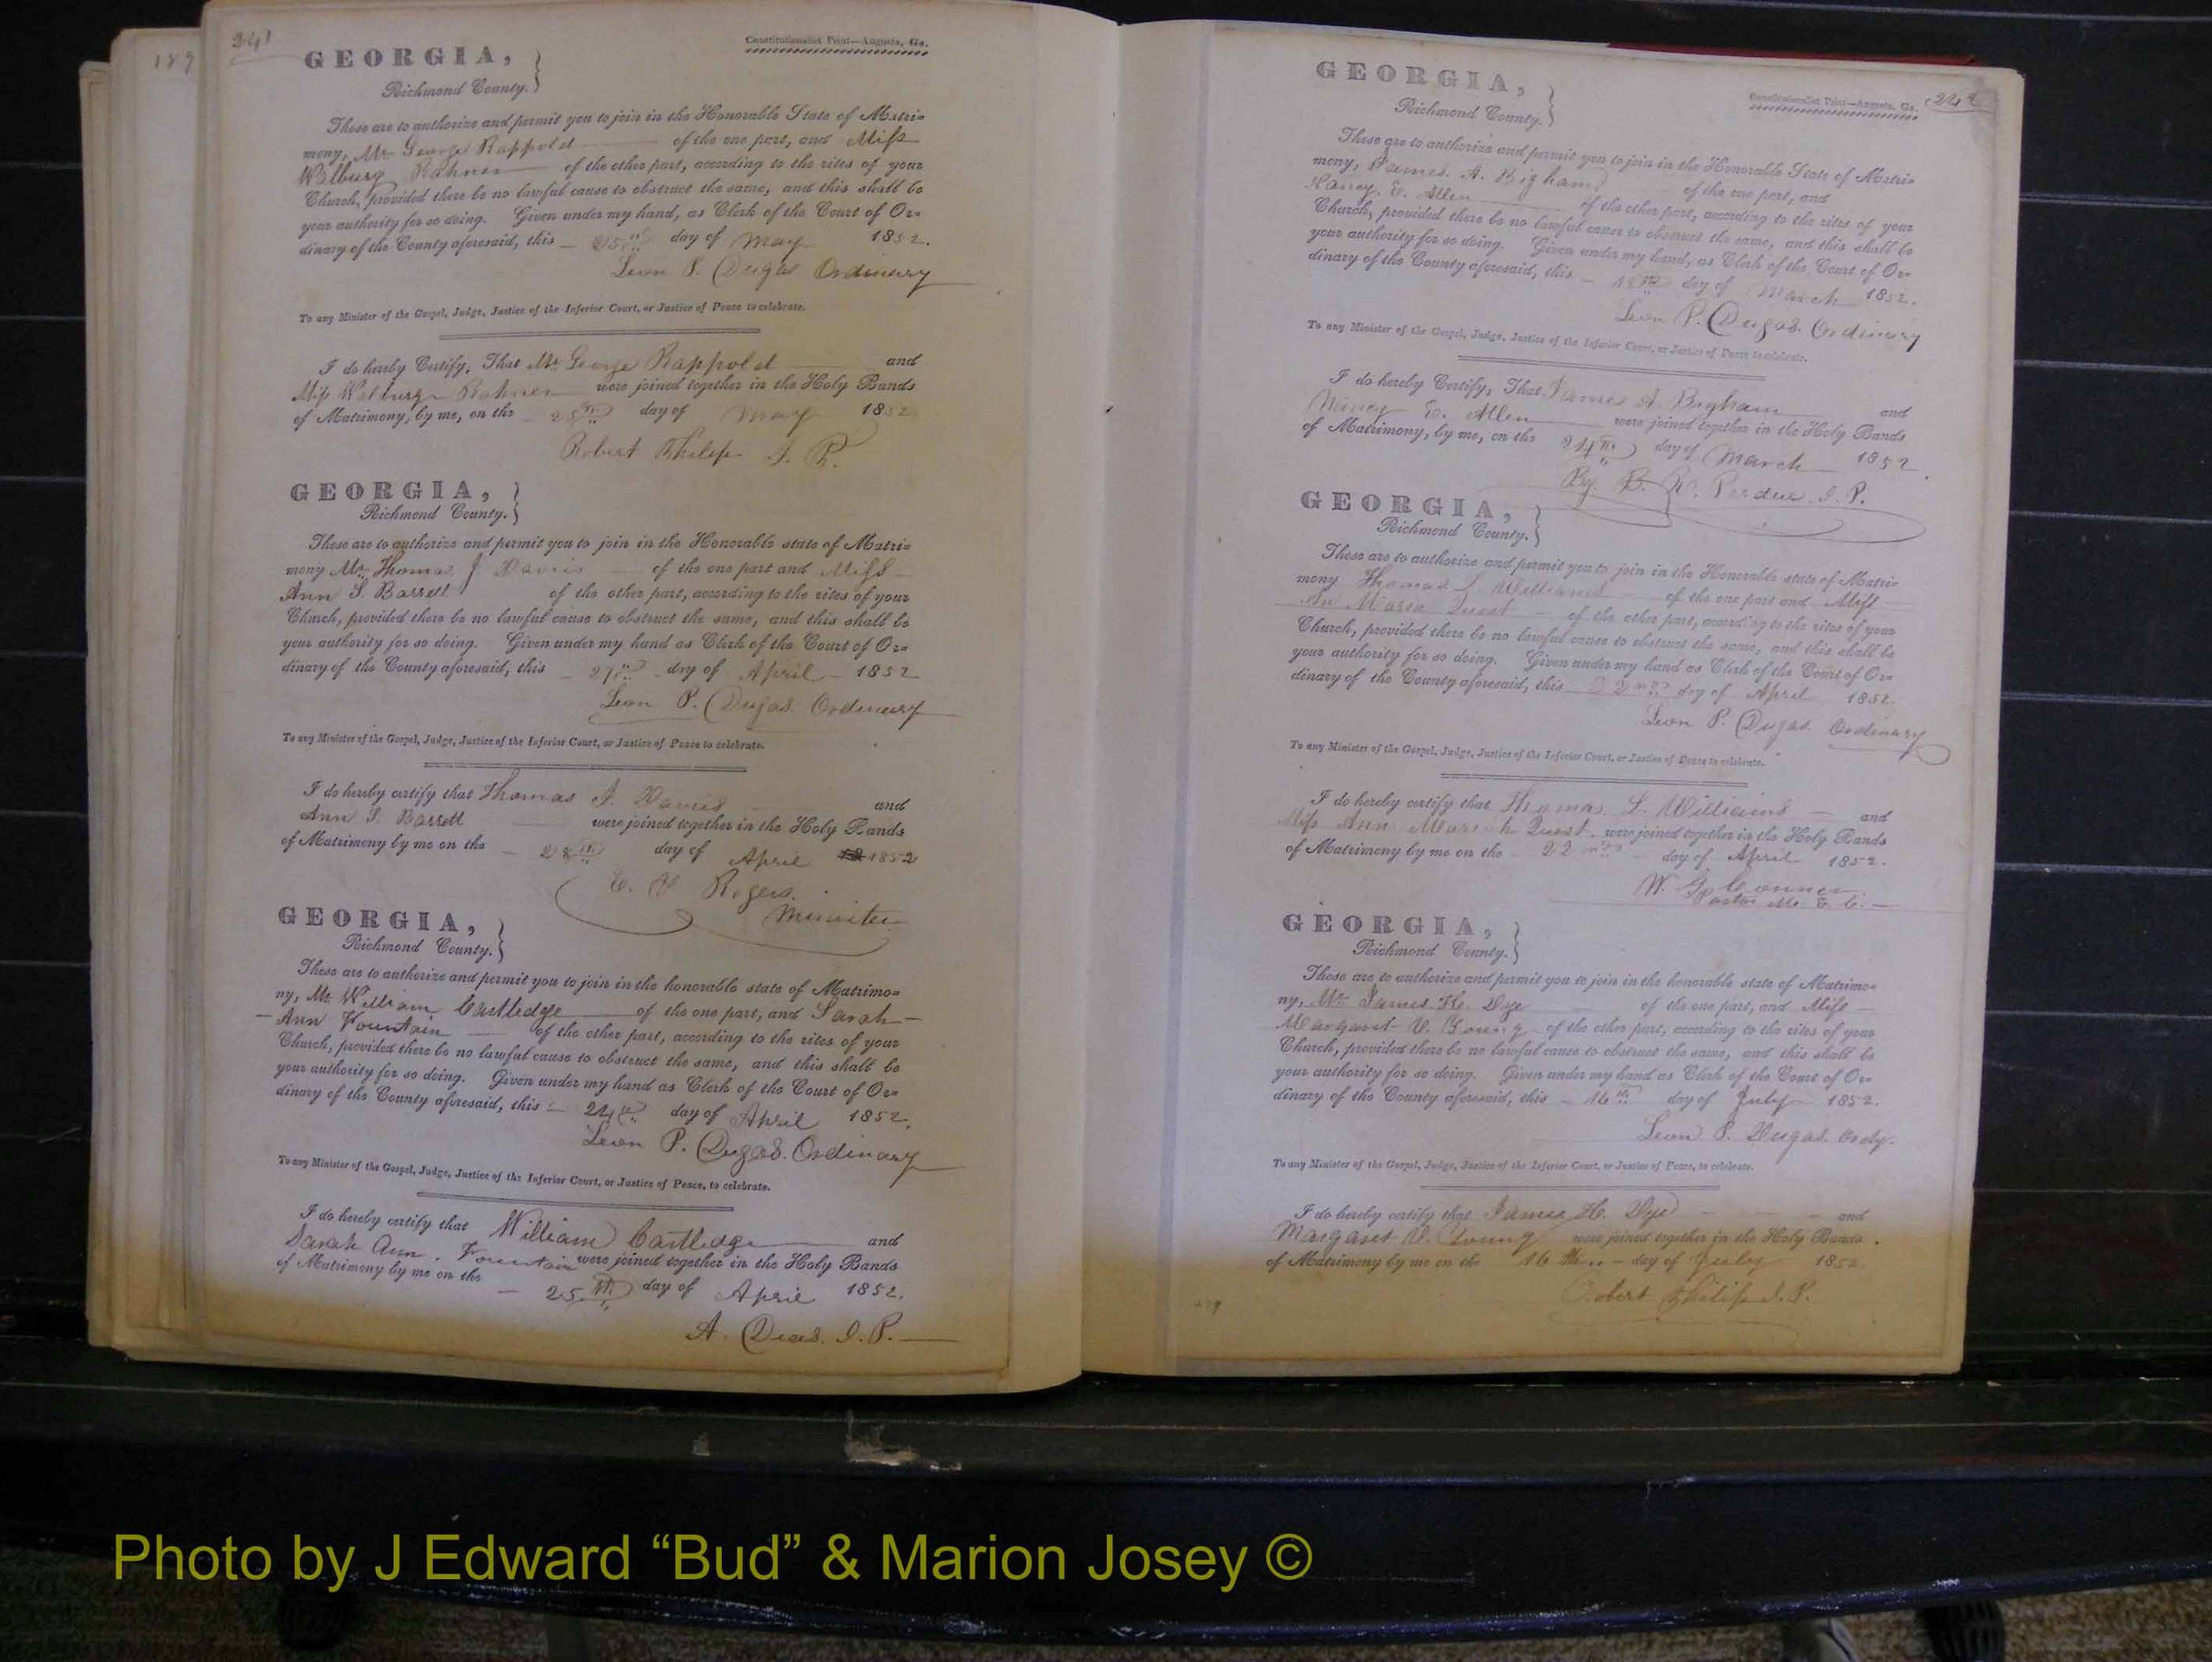 189
241
Constitutionalist Print—Augusta, Ga.
GEORGIA,
Richmond County.
These are to authorize and permit you to join in the Honorable State of Matri=
mony, Mr George Rappold of the one part, and Miss
Walburg Rohner of the other part, according to the rites of your
Church, provided there be no lawful cause to obstruct the same, and this shall be
your authority for so doing. Given under my hand, as Clerk of the Court of Or=
dinary of the County aforesaid, this 25th day of May 1852.
Leon P. Dugas Ordinary
To any Minister of the Gospel, Judge, Justice of the Inferior Court, or Justice of Peace to celebrate.
I do hereby Certify, That Mr George Rappold and
Miss Walburg Rohner were joined together in the Holy Bands
of Matrimony, by me, on the 25th day of May 1852
Robert Philip J. P.
GEORGIA,
Richmond County.
These are to authorize and permit you to join in the Honorable state of Matri=
mony Mr Thomas J Davies of the one part and Miss
Ann S. Barrett of the other part, according to the rites of your
Church, provided there be no lawful cause to obstruct the same, and this shall be
your authority for so doing. Given under my hand as Clerk of the Court of Or=
dinary of the County aforesaid, this 27th day of April 1852
Leon P. Dugas. Ordinary
To any Minister of the Gospel, Judge, Justice of the Inferior Court, or Justice of Peace to celebrate.
I do hereby certify that Thomas J. Davies and
Ann S. Barrett were joined together in the Holy Bands
of Matrimony by me on the 28th day of April 1852
E. Rogers.
Minister
GEORGIA,
Richmond County.
These are to authorize and permit you to join in the honorable state of Matrimo=
ny, Mr William Cartledge of the one part, and Sarah
Ann Fountain of the other part, according to the rites of your
Church, provided there be no lawful cause to obstruct the same, and this shall be
your authority for so doing. Given under my hand as Clerk of the Court of Or=
dinary of the County aforesaid, this 24th day of April 1852.
Leon P. Dugas. Ordinary
To any Minister of the Gospel, Judge, Justice of the Inferior Court, or Justice of Peace, to celebrate.
I do hereby certify that William Cartledge and
Sarah Ann. Fountain were joined together in the Holy Bands
of Matrimony by me on the 25th day of April 1852.
A. Deas. J. P.
Constitutionalist Print—Augusta, Ga.
242
GEORGIA,
Richmond County.
These are to authorize and permit you to join in the Honorable State of Matri=
mony, James. A. Bigham of the one part, and
Nancy. E. Allen of the other part, according to the rites of your
Church, provided there be no lawful cause to obstruct the same, and this shall be
your authority for so doing. Given under my hand, as Clerk of the Court of Or=
dinary of the County aforesaid, this 18th day of March 1852.
Leon P. Dugas. Ordinary
To any Minister of the Gospel, Judge, Justice of the Inferior Court, or Justice of Peace to celebrate.
I do hereby Certify, That James A. Bigham and
Nancy E. Allen were joined together in the Holy Bands
of Matrimony, by me, on the 24th day of March 1852
By. B. Perdue. J. P.
GEORGIA,
Richmond County.
These are to authorize and permit you to join in the Honorable state of Matri=
mony Thomas Williams of the one part and Miss
An Maria Quest of the other part, according to the rites of your
Church, provided there be no lawful cause to obstruct the same, and this shall be
your authority for so doing. Given under my hand as Clerk of the Court of Or=
dinary of the County aforesaid, this 22nd day of April 1852.
Leon P. Dugas. Ordinary
To any Minister of the Gospel, Judge, Justice of the Inferior Court, or Justice of Peace to celebrate.
I do hereby certify that Thomas. L. Williams and
Miss Ann Mariah Quest. were joined together in the Holy Bands
of Matrimony by me on the 22nd day of April 1852.
W. G. Conner.
Pastor M. E. C.
GEORGIA,
Richmond County.
These are to authorize and permit you to join in the honorable state of Matrimo=
ny, Mr James. H. Dye of the one part, and Miss
Margaret V. Young of the other part, according to the rites of your
Church, provided there be no lawful cause to obstruct the same, and this shall be
your authority for so doing. Given under my hand as Clerk of the Court of Or=
dinary of the County aforesaid, this 16th day of July 1852.
Leon P. Dugas. Ordy.
To any Minister of the Gospel, Judge, Justice of the Inferior Court, or Justice of Peace, to celebrate.
I do hereby certify that James H. Dye and
Margaret V. Young were joined together in the Holy Bands
of Matrimony by me on the 16th day of July 1852
Robert Philip J. P.
Photo by J Edward “Bud” & Marion Josey ©